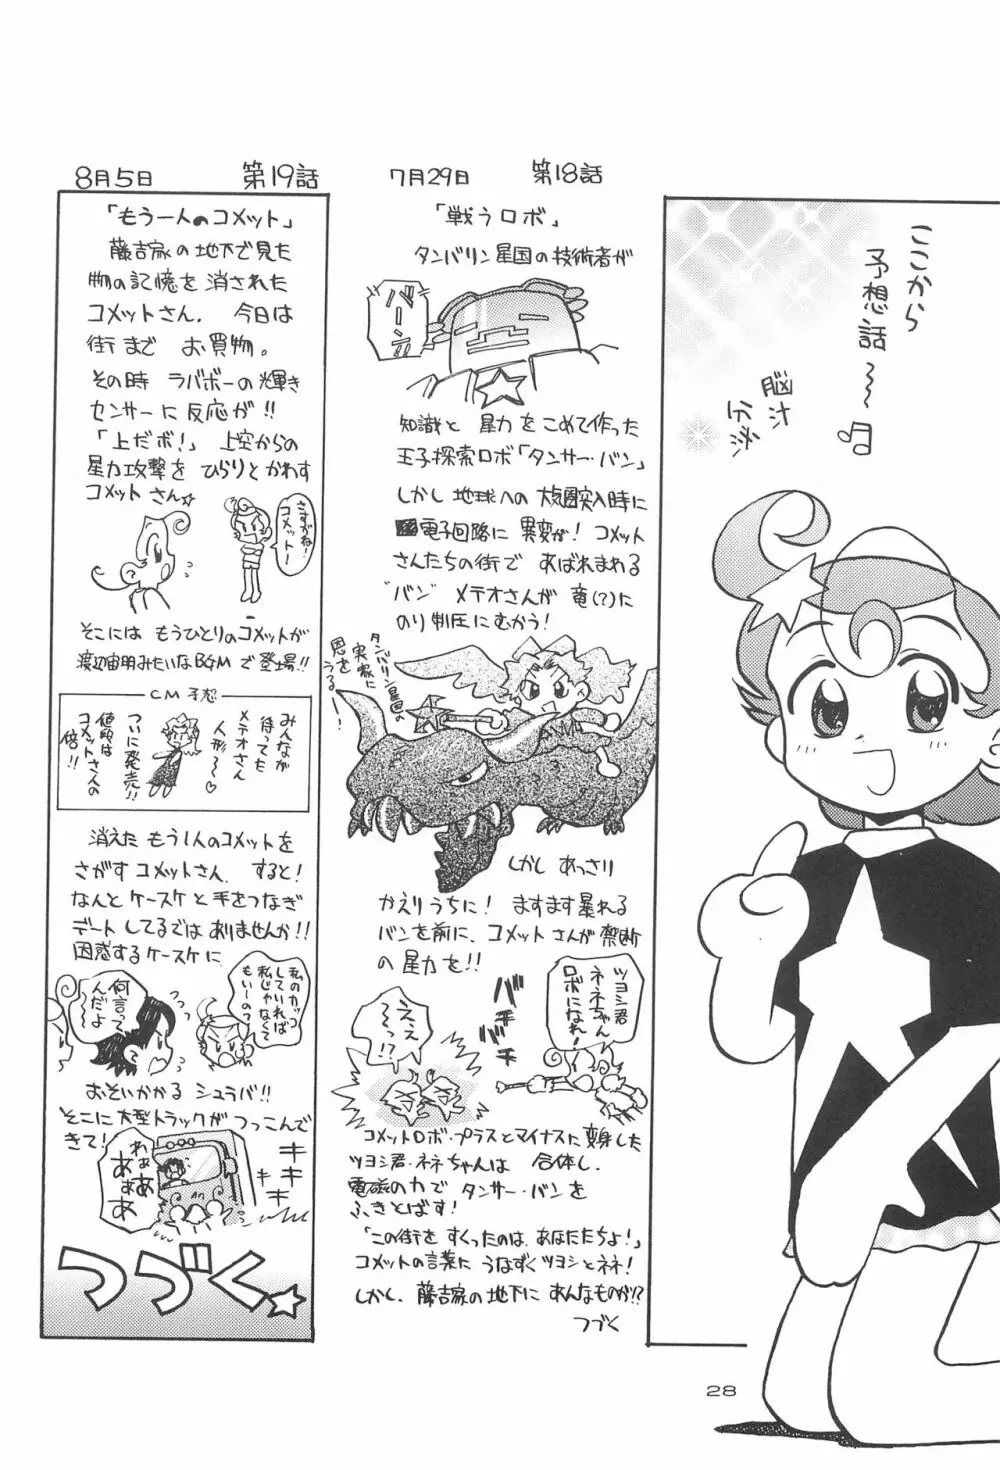 ここから
予想話〜♪
脳汁
分泌
7月29日 第18話
「戦うロボ」
タンバリン星国の技術者が
バーン
知識と 星力をこめて作った
王子探索ロボ「タンサー・バン」
しかし 地球への 大気圏突入時に
電子回路に 異変が! コメット
さんたちの街で あばれまわる
バン メテオさんが 竜(?)に
のり制圧にむかう!
タンバリン星国の
実家に
思をうる―!
しかし あっさり
かえりうちに! ますます暴れる
バンを前に、コメットさんが禁断
の星力を!!
ツヨシ君
ネネちゃん
ロボになれ!
バチ
バチ
ええぇ
〜〜っ!?
コメットロボ・プラスとマイナスに変身した
ツヨシ君・ネネちゃんは 合体し、
電磁の力で タンサー・バンを
ふきとばす!
「この街を すくったのは、あなたたちよ!」
コメットの言葉に うなずくツヨシとネネ!
しかし、藤吉家の地下に あんなものが!?
つづく
8月5日 第19話
「もう一人のコメット」
藤吉家の地下で見た
物の記憶を消された
コメットさん. 今日は
街まで お買物。
その時 ラバボーの輝き
センサーに反応が!!
「上だボ!」 上空からの
星力攻撃を ひらりとかわす
コメットさん☆
さすがね!
コメット―
そこには もうひとりのコメットが
渡辺宙明みたいなBGMで登場!!
CM予想
みんなが
待ってた
メテオさん
人形〜♡
ついに発売!!
値段は
コメットさんの
倍!!
消えた もう1人のコメットを
さがす コメットさん. すると!
なんと ケースケと手をつなぎ
デートしてるでは ありませんか!!
困惑するケースケに
私のカッコ
していれば
私じゃなくて
もいーの?
何言って
んだよ
おそいかかる シュラバ!!
そこに 大型トラックが つっこんで
きて!
わぁ
あぁ
ぁぁ
あ
キキキキ
つづく☆
28